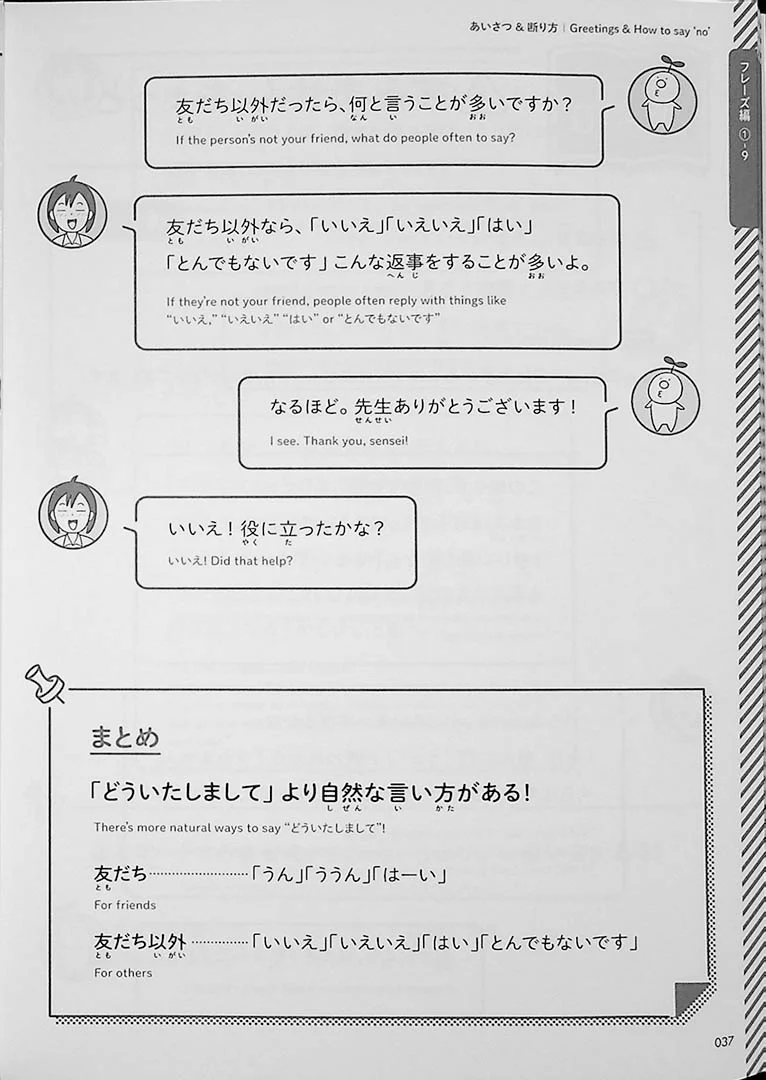 あいさつ & 断り方 | Greetings & How to say 'no'
フレーズ編 ①-9
友だち以外だったら、何と言うことが多いですか？
とも いがい なん い おお
If the person's not your friend, what do people often to say?
友だち以外なら、「いいえ」「いえいえ」「はい」
とも いがい
「とんでもないです」こんな返事をすることが多いよ。
へんじ おお
If they're not your friend, people often reply with things like
"いいえ," "いえいえ" "はい" or "とんでもないです"
なるほど。先生ありがとうございます！
せんせい
I see. Thank you, sensei!
いいえ！役に立ったかな？
やく た
いいえ! Did that help?
まとめ
「どういたしまして」より自然な言い方がある！
しぜん い かた
There's more natural ways to say "どういたしまして"!
友だち……………………「うん」「ううん」「はーい」
とも
For friends
友だち以外……………「いいえ」「いえいえ」「はい」「とんでもないです」
とも いがい
For others
037